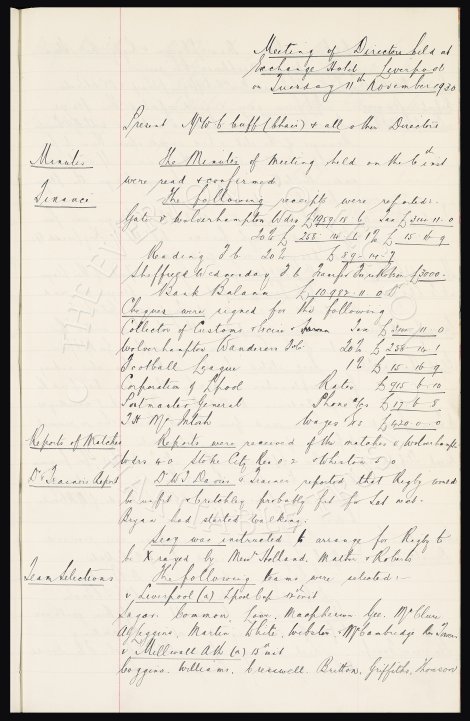 Meeting of Directors held at
Exchange Hotel Liverpool
on Tuesday 11th November 1930
Present Mr W C Cuff (Chair) & all other Directors
Minutes
The Minutes of Meeting held on the 6th inst
were read & confirmed.
Finance
The following receipts were reported:-
Gate v Wolverhampton Wdrs £1959 15 6 Tax £ 11 0
20% £ 258 14 1 1% £ 15 16 9
Reading F C 20% £ 89 14 7
Sheffield Wednesday F C Transfer £3000
Bank Balance £10,982 11 0
Cheques were signed for the following
Collector of Customs & Excise Tax £ 11 0
Wolverhampton Wanderers F.C. 20% £ 258 14 1
Football League 1% £ 15 16 9
Corporation of L'pool Rates £ 915 6 10
Postmaster General Phone a/cs £ 17 6 8
T.H. McIntosh Wages &cs £ 420 0 0
Reports of Matches
Reports were received of the matches v Wolverhampton
Wdrs 4 0 Stoke City Res 0 2 v Whiston 5 0
Dr & Trainers Report
Dr W J Davies & Trainer reported that Rigby would
be unfit & Critchley probably fit for Sat next.
Bryan had started walking.
Secy was instructed to arrange for Rigby to
be X rayed by Holland, &
Team Selections
The following teams were selected:-
v Liverpool (a) Lpool Cup inst
Sagar. Common, Lowe. Macpherson Gee. McClure
Martin, White. Webster & McCambridge
v Millwall Ath (a) 15th inst
Coggins. Williams. Cresswell. Britton, Griffiths, Thomson